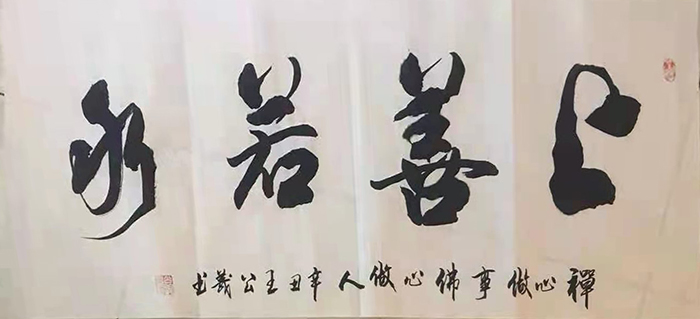 上善若水
禪心做事佛心做人辛丑王公義书